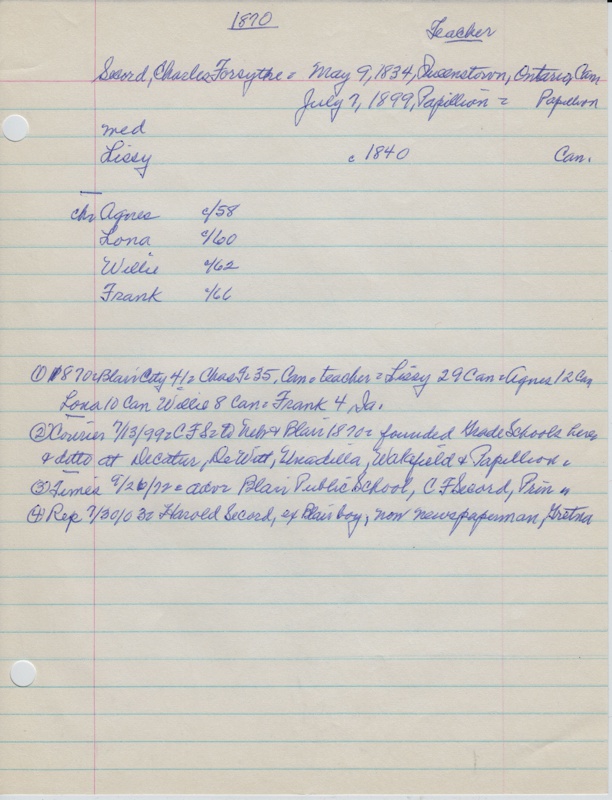 1870
Teacher
Secord, Charles Forsythe = May 9, 1834, Queenstown, Ontario, Can
July 7, 1899, Papillion = Papillion
med
Lissy c 1840 Can.
ch: Agnes c/58
Lona c/60
Willie c/62
Frank c/66
① 1870 = Blair City 41 = Chas F = 35, Can = teacher = Lissy 29 Can = Agnes 12 Can
Lona 10 Can Willie 8 Can = Frank 4 Ia.
② Courier 7/13/99 = C F S = to Neb & Blair 1870 = founded Grade Schools here
& ditto at Decatur, DeWitt, Unadilla, Wakefield & Papillion =
③ Times 9/26/72 = adv Blair Public School, C F Secord, Prin =
④ Rep 7/30/03 = Harold Secord, ex Blair boy, now newspaperman, Gretna